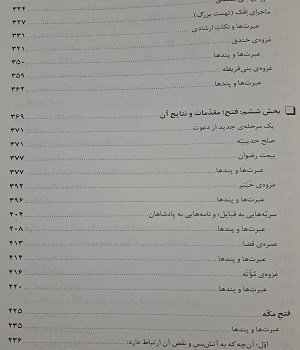 ۳۲۴
ماجرای اِفک (تهمت بزرگ) ۳۲۷
عبرت‌ها و نکات ارشادی ۳۳۱
غزوه‌ی خندق ۳۴۱
عبرت‌ها و پندها ۳۵۰
غزوه‌ی بنی‌قریظه ۳۵۹
عبرت‌ها و پندها ۳۶۲
بخش ششم: فتح؛ مقدّمات و نتایج آن ۳۶۹
یک مرحله‌ی جدید از دعوت ۳۷۱
صلح حدیبیّه ۳۷۱
بیعت رضوان ۳۷۷
عبرت‌ها و پندها ۳۷۷
غزوه‌ی خیبر ۳۹۲
عبرت‌ها و پندها ۳۹۶
سریّه‌هایی به قبایل؛ و نامه‌هایی به پادشاهان ۴۰۴
عبرت‌ها و پندها ۴۰۸
عمره‌ی قضا ۴۱۳
عبرت‌ها و پندها ۴۱۴
غزوه‌ی مُؤته ۴۱۶
عبرت‌ها و پندها ۴۲۰
فتح مکّه ۴۲۵
عبرت‌ها و پندها ۴۳۵
اوّل: آن‌چه که به آتش‌بس و نقض آن ارتباط دارد: ۴۳۶